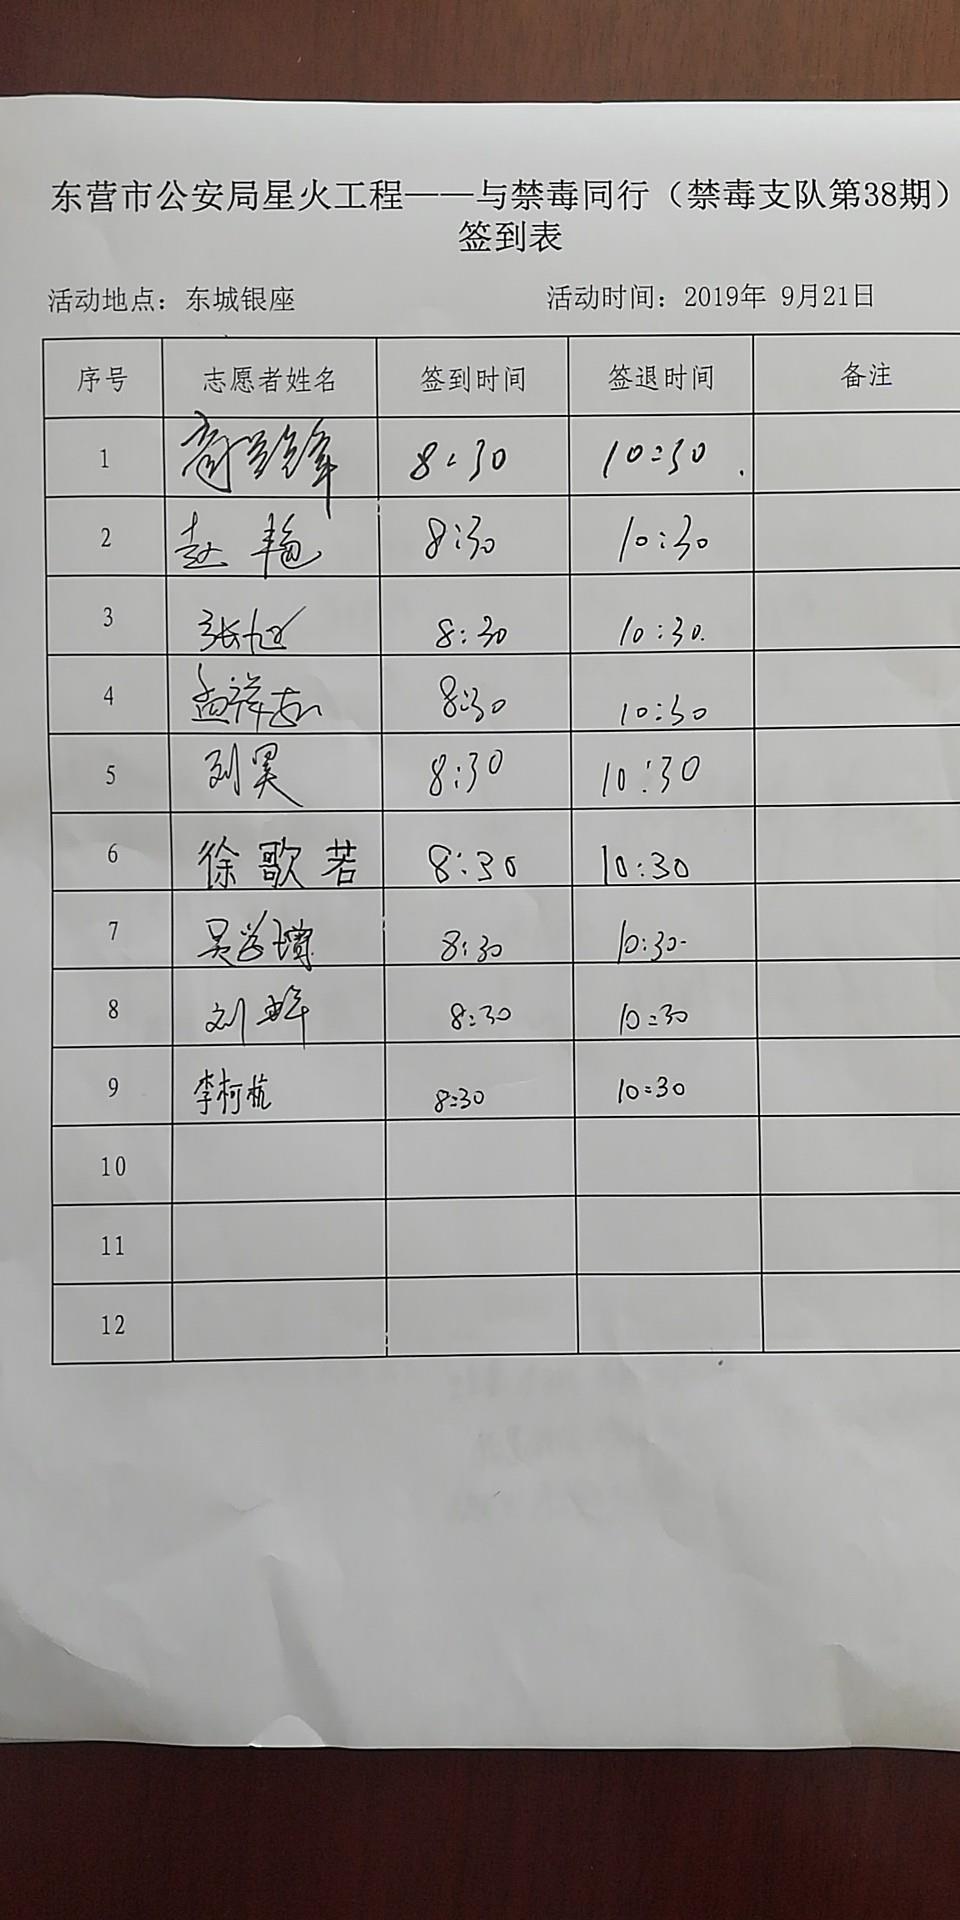 东营市公安局星火工程——与禁毒同行（禁毒支队第38期）
签到表
活动地点：东城银座 活动时间：2019年 9月21日
序号 志愿者姓名 签到时间 签退时间 备注
1 8:30 10:30
2 赵艳 8:30 10:30
3 张旭 8:30 10:30
4 孟祥志 8:30 10:30
5 刘昊 8:30 10:30
6 徐歌若 8:30 10:30
7 吴学博 8:30 10:30
8 刘 8:30 10:30
9 李柯杭 8:30 10:30
10
11
12